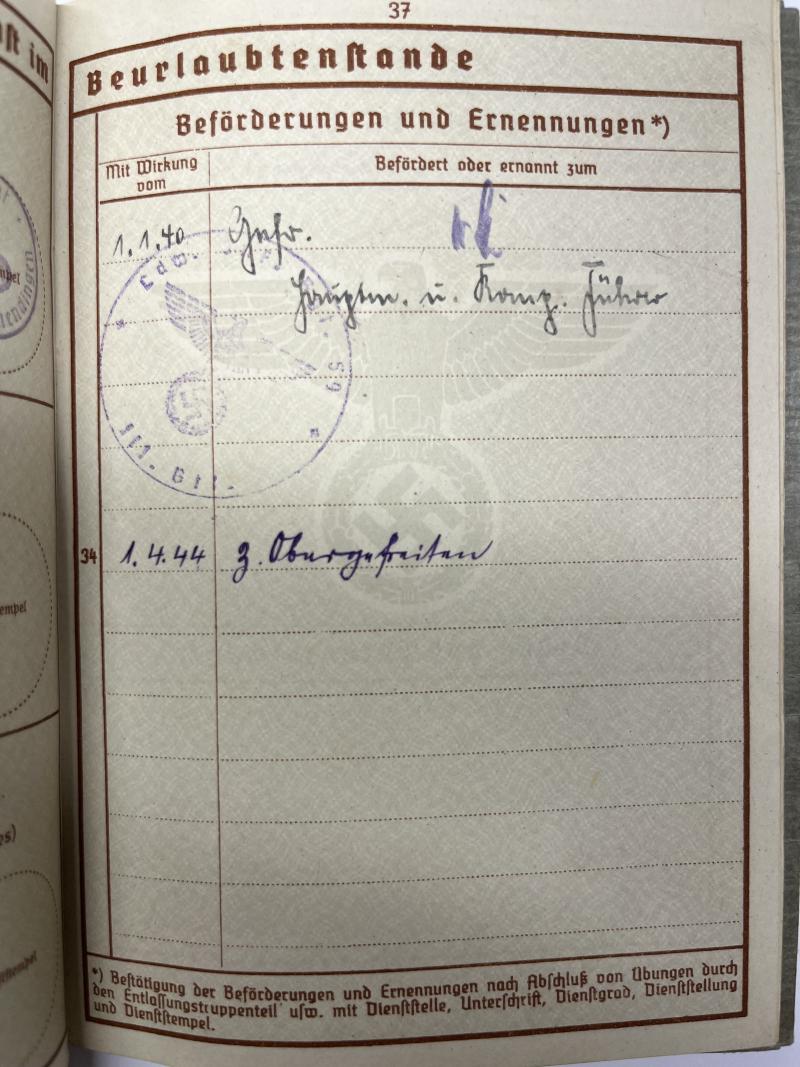 37
ſt im
Beurlaubtenſtande
Beförderungen und Ernennungen*)
Mit Wirkung vom
Befördert oder ernannt zum
1.1.40 Gefr.
Hauptm. u. Komp. Führer
Ldw. 59
III.
34 1.4.44 z. Obergefreiten
*) Beſtätigung der Beförderungen und Ernennungen nach Abſchluß von Übungen durch
den Entlaſſungstruppenteil uſw. mit Dienſtſtelle, Unterſchrift, Dienſtgrad, Dienſtſtellung
und Dienſtſtempel.